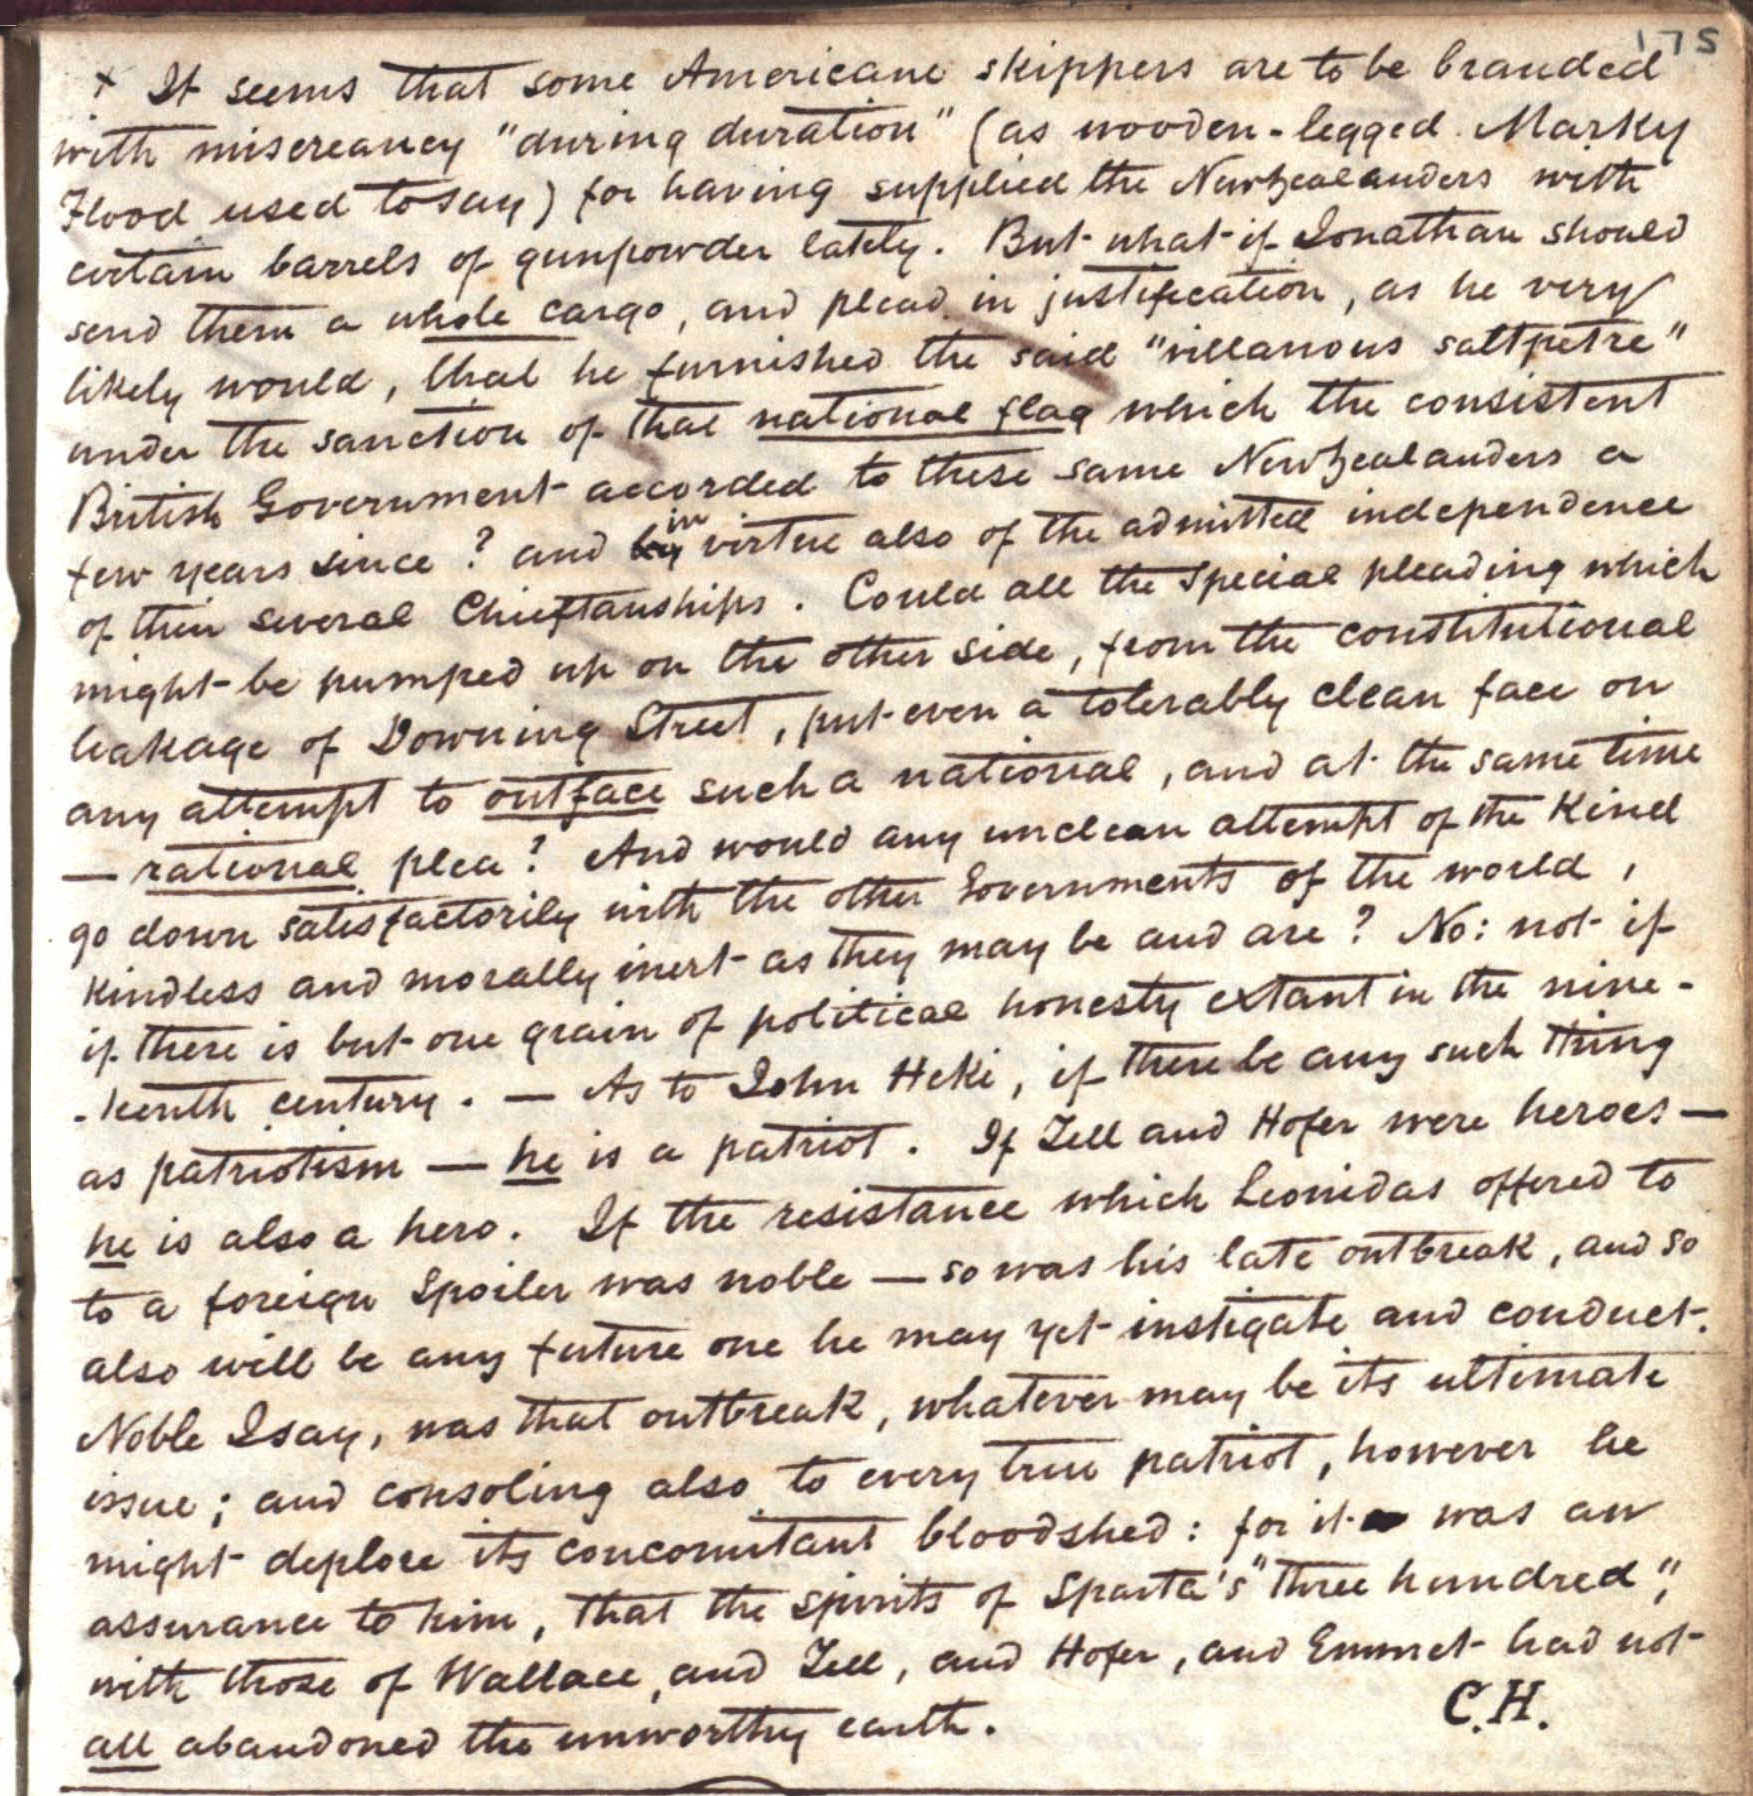 175
+ It seems that some Americane skippers are to be branded
with miscreancy "during duration" (as wooden-legged Marky
Flood used to say) for having supplied the Newzealanders with
certain barrels of gunpowder lately. But what if Jonathan should
send them a whole cargo, and plead in justification, as he very
likely would, that he furnished the said "villanous saltpetre"
under the sanction of that national flag which the consistent
British Government accorded to these same Newzealanders a
few years since? and by in virtue also of the admitted independence
of their several Chieftanships. Could all the Special pleading which
might be pumped up on the other side, from the constitutional
leakage of Downing Street, put even a tolerably clean face on
any attempt to outface such a national, and at the same time
— rational plea? And would any unclean attempt of the Kind
go down satisfactorily with the other Governments of the world,
kindless and morally inert as they may be and are? No: not if
if there is but one grain of political honesty extant in the nine-
-teenth century. — As to John Heki, if there be any such thing
as patriotism — he is a patriot. If Tell and Hofer were heroes —
he is also a hero. If the resistance which Leonidas offered to
to a foreign Spoiler was noble — so was his late outbreak, and so
also will be any future one he may yet instigate and conduct.
Noble I say, was that outbreak, whatever may be its ultimate
issue; and consoling also to every true patriot, however he
might deplore its concomitant bloodshed: for it was an
assurance to him, that the spirits of Sparta's "three hundred",
with those of Wallace, and Tell, and Hofer, and Emmet had not
all abandoned the unworthy earth.
C.H.